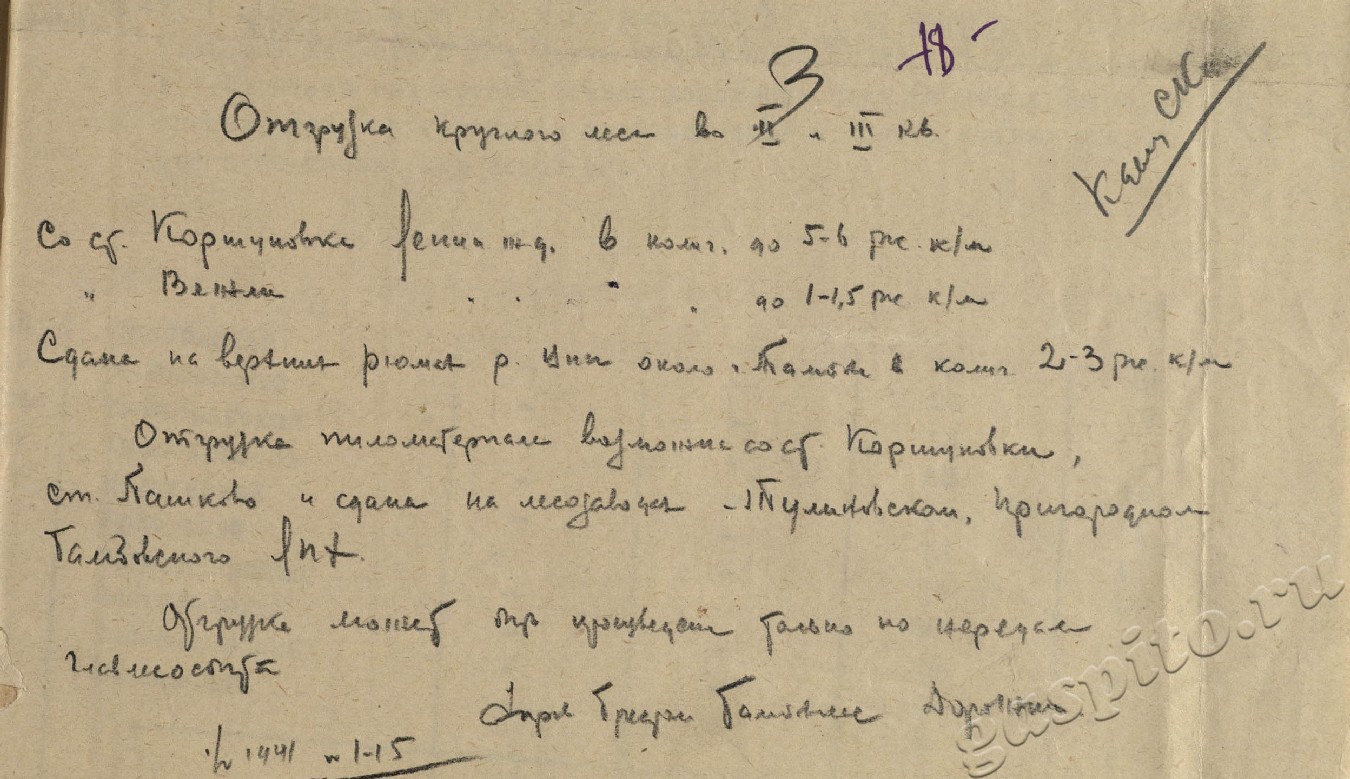 3 18-
Отгрузка круглого леса во II и III кв.
Со ст. Коршуновка Ленин ж-д. в колич. до 5-6 тыс. к/м
" Вяжли " " " " " до 1-1,5 тыс к/м
Сдача на верхних рюмах р. Цны около г. Тамбова в колич 2-3 тыс. к/м
Отгрузка пиломатериала возможна со ст. Коршуновки,
ст. Пашково и сдача на лесозаводах - Тулиновском, Пригородном
Тамбовского ЛПХ.
Отгрузка может быть произведена только по нарядам
Главлессбыта
Тамблес
1941 1-15
gaspito.ru